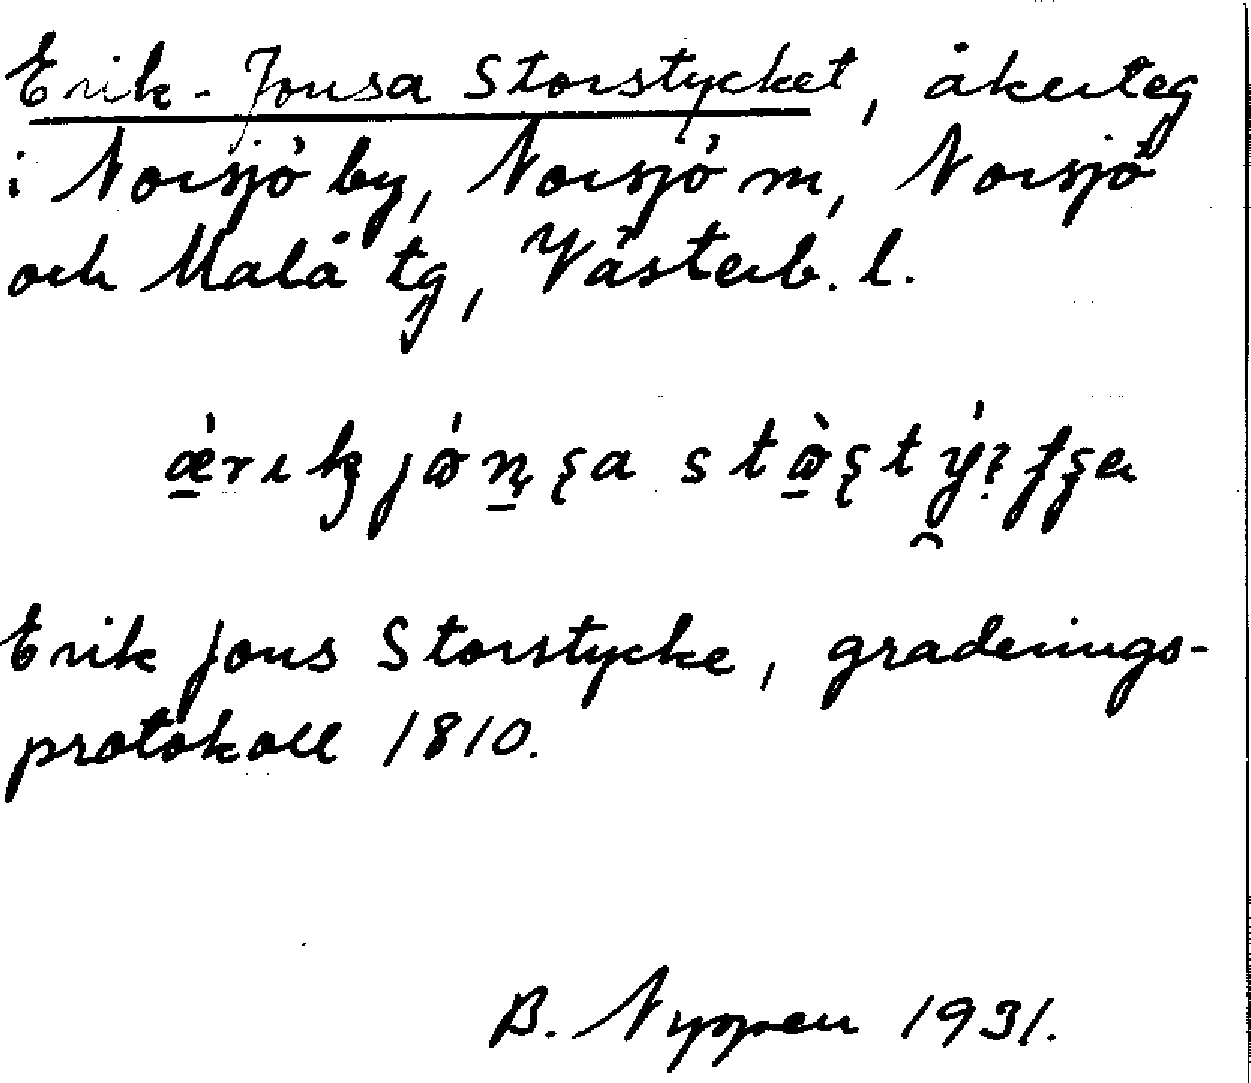 Erik-Jonsa Storstycket, åkerteg
i Norsjö by, Norsjö m, Norsjö
och Malå tg, Västerb. l.
Erik Jons Storstycke, graderings-
protokoll 1810.
B. Nyppen 1931.